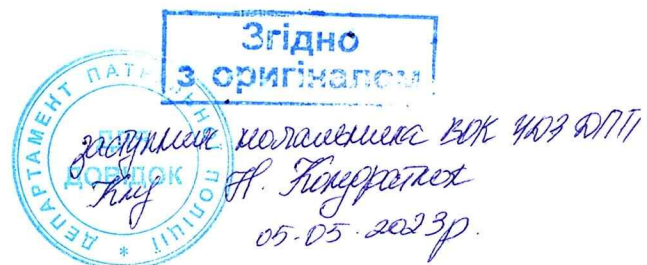 Згідно
з оригіналом
ДЕПАРТАМЕНТ ПАТРУЛЬНОЇ ПОЛІЦІЇ *
ДЛЯ
ДОВІДОК
заступник начальника ВОК УДЗ ДПП
Н. Кондратюк
05.05.2023р.